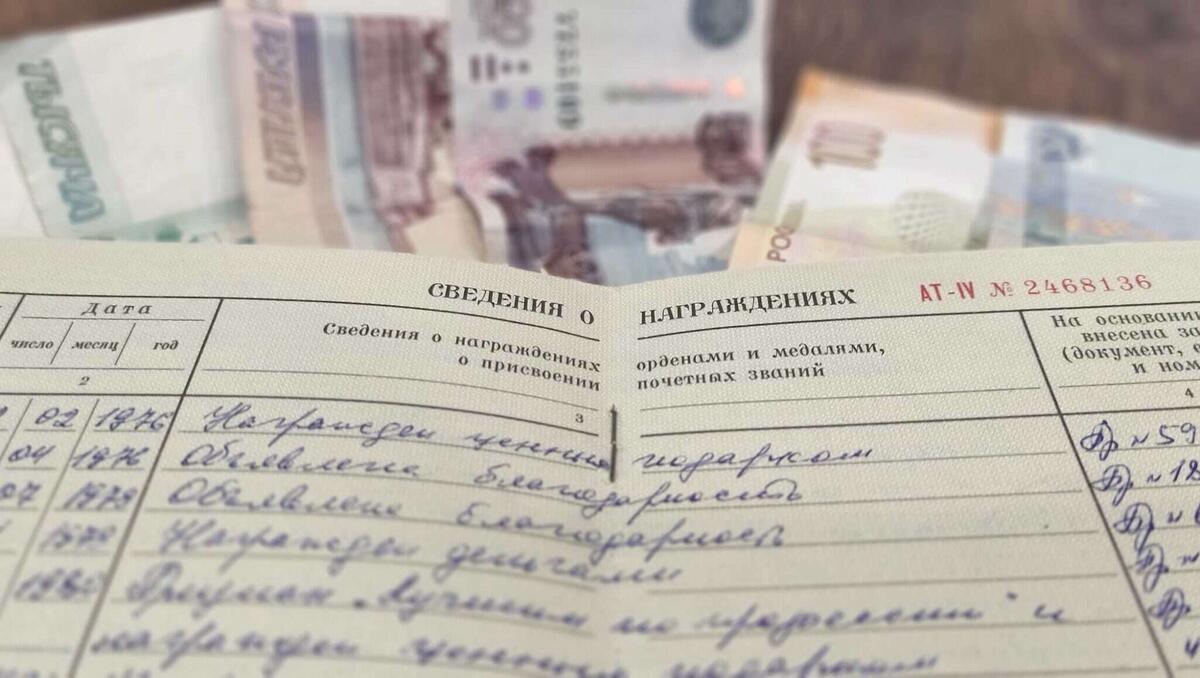 ТЫСЯЧА
100
РОС
СВЕДЕНИЯ О НАГРАЖДЕНИЯХ АТ-IV № 2468136
Дата
число месяц год
Сведения о награждениях орденами и медалями,
о присвоении почетных званий
На основании
внесена за
(документ,
и ном
2 3 4
02 1976 Награжден ценным подарком Пр № 59
04 1976 Объявлена благодарность Пр № 12
07 1979 Объявлена благодарность Пр №
Награжден деньгами Пр №
Признан "Лучшим по профессии" и Пр
награжден ценным подарком